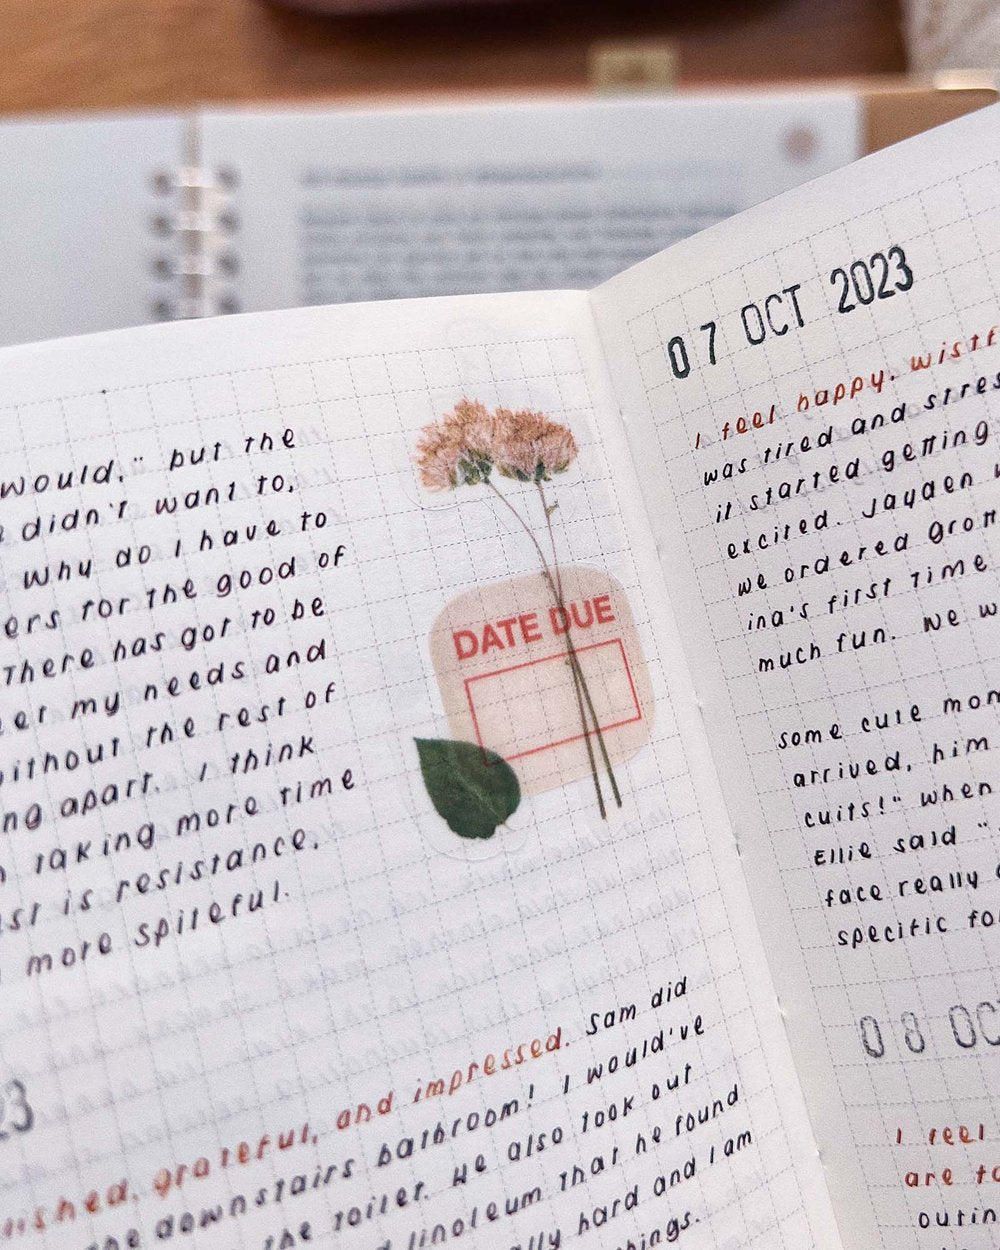 would," but the
didn't want to,
why do I have to
ers for the good of
There has got to be
my needs and
without the rest of
ng apart. I think
taking more time
is resistance,
more spiteful.
DATE DUE
23
grateful, and impressed. Sam did
the downstairs bathroom! I would've
the toilet. He also took out
linoleum that he found
hard and I am
07 OCT 2023
I feel happy, wistf
was tired and stres
it started getting
excited. Jayden
we ordered grott
ina's first time
much fun. We w
some cute mom
arrived, him
cuits!" when
Ellie said "
face really
specific fo
08 OC
I feel
are to
outin